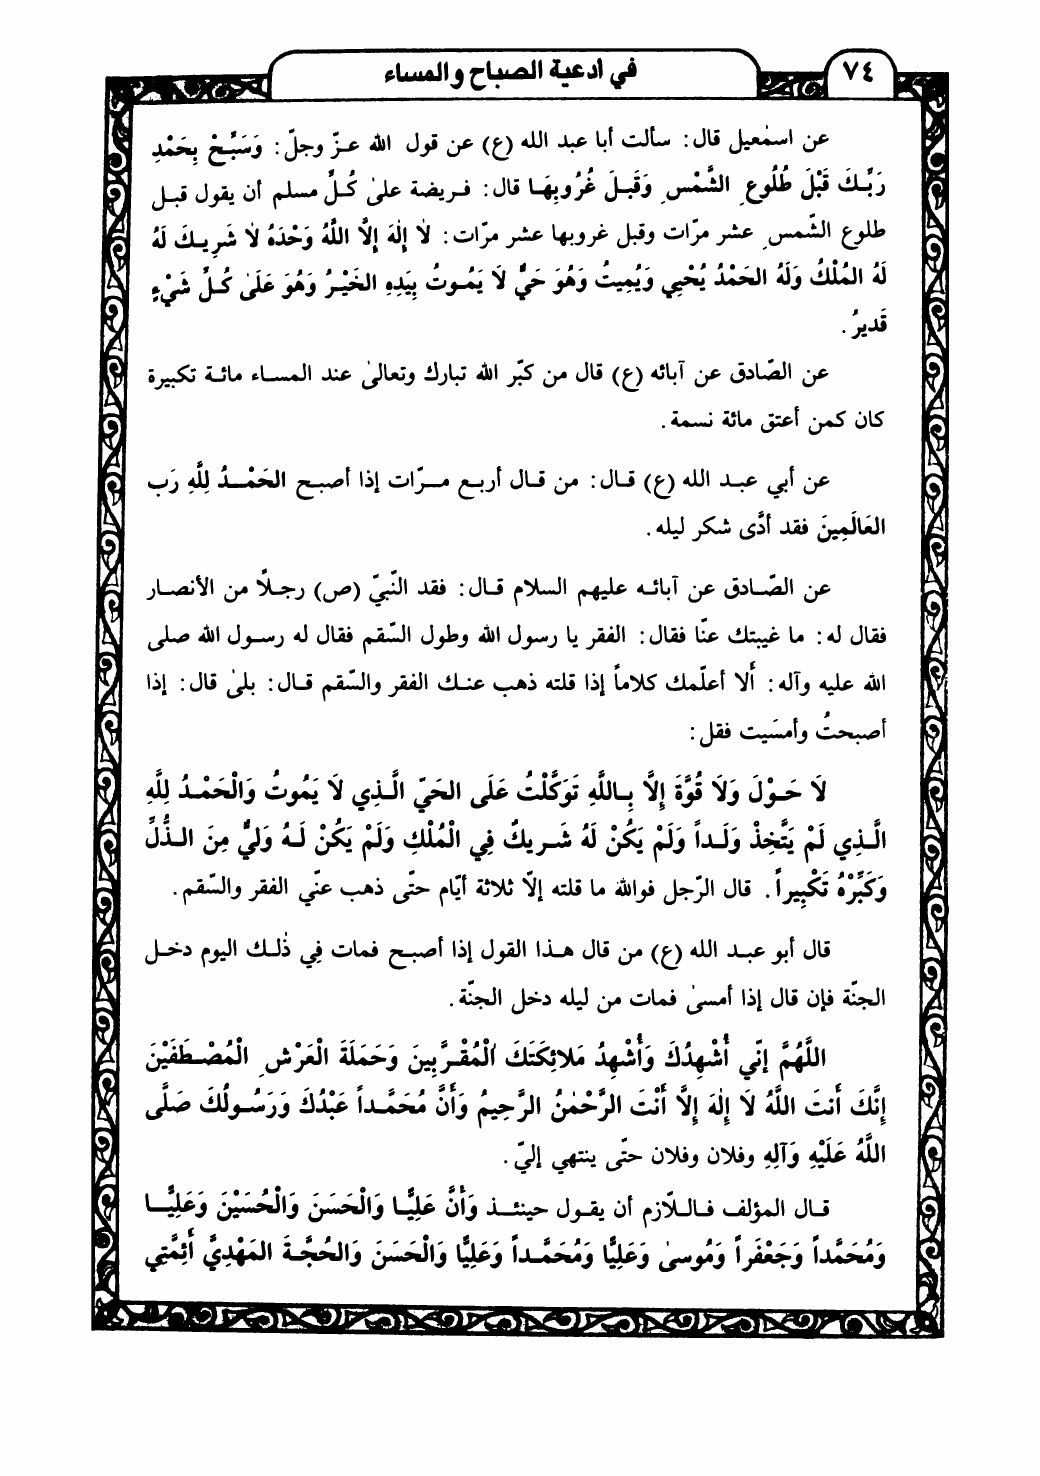 ٧٤
في أدعية الصباح والمساء
عن اسمٰعيل قال: سألت أبا عبد الله (ع) عن قول الله عـزّ وجلّ: وَسَبِّـحْ بِحَمْدِ
رَبِّـكَ قَبْلَ طُلُوعِ الشَّمْسِ وَقَبـلَ غُرُوبِهَـا قال: فـريضة علىٰ كُـلِّ مسلم أن يقول قبـل
طلوع الشّمسِ عشر مرّات وقبل غروبها عشر مرّات: لاٰ إِلٰهَ إِلَّا اللَّهُ وَحْدَهُ لاٰ شَرِيـكَ لَهُ
لَهُ المُلْكُ وَلَهُ الحَمْدُ يُحْيِي وَيُمِيتُ وَهُوَ حَيٌّ لَا يَمُـوتُ بِيَدِهِ الخَيْـرُ وَهُوَ عَلَىٰ كُـلِّ شَيْءٍ
قَدِيرٌ.
عن الصّادق عن آبائه (ع) قال من كبّر الله تبارك وتعالىٰ عند المساء مائـة تكبيرة
كان كمن أعتق مائة نسمة.
عن أبي عبـد الله (ع) قـال: من قـال أربـع مـرّات إذا أصبـح الحَمْـدُ لِلَّهِ رَب
العَالَمِينَ فقد أدَّى شكر ليله.
عن الصّـادق عن آبائـه عليهم السلام قـال: فقد النّبيّ (ص) رجـلاً من الأنصـار
فقال له: ما غيبتك عنّا فقال: الفقر يا رسول الله وطول السّقم فقال له رسـول الله صلى
الله عليه وآله: أَلا أعلّمك كلاماً إذا قلته ذهب عنـك الفقر والسّقم قـال: بلىٰ قال: إذا
أصبحتُ وأمسَيت فقل:
لَا حَـوْلَ وَلَا قُوَّةَ إِلَّا بِـاللَّهِ تَوَكَّلْتُ عَلَى الحَيّ الَّـذِي لَا يَمُوتُ وَالْحَمْـدُ لِلَّهِ
الَّـذِي لَمْ يَتَّخِذْ وَلَـداً وَلَمْ يَكُنْ لَهُ شَـرِيكٌ فِي الْمُلْكِ وَلَمْ يَكُنْ لَـهُ وَليٌّ مِنَ الـذُّلِّ
وَكَبِّرْهُ تَكْبِيراً. قال الرّجل فوالله ما قلته إلاّ ثلاثة أيّام حتّى ذهب عنّي الفقر والسّقم.
قال أبو عبـد الله (ع) من قال هـذا القول إذا أصبـح فمات فِي ذٰلـك اليوم دخـل
الجنّة فإن قال إذا أمسىٰ فمات من ليله دخل الجنّة.
اللَّهُمَّ إِنّي أُشْهِدُكَ وَأُشْهِدُ مَلائِكَتَكَ الْمُقَـرَّبِينَ وَحَمَلَةَ الْعَرْشِ الْمُصْـطَفَيْنَ
إِنَّكَ أَنتَ اللَّهُ لَا إِلٰهَ إِلَّا أَنْتَ الرَّحْمٰنُ الرَّحِيمُ وَأَنَّ مُحَمَّـداً عَبْدُكَ وَرَسُـولُكَ صَلَّى
اللَّهُ عَلَيْهِ وَآلِهِ وفلان وفلان حتّى ينتهي إليّ.
قـال المؤلف فـالـلاّزم أن يقـول حينئـذ وَأَنَّ عَلِيًّـا وَالْحَسَنَ وَالْحُسَيْنَ وَعَلِيًّـا
وَمُحَمَّداً وَجَعْفَراً وَمُوسىٰ وَعَلِيًّا وَمُحَمَّـداً وَعَلِيًّا وَالْحَسَنَ وَالحُجَّـةَ المَهْدِيَّ أَئِمَّتِي